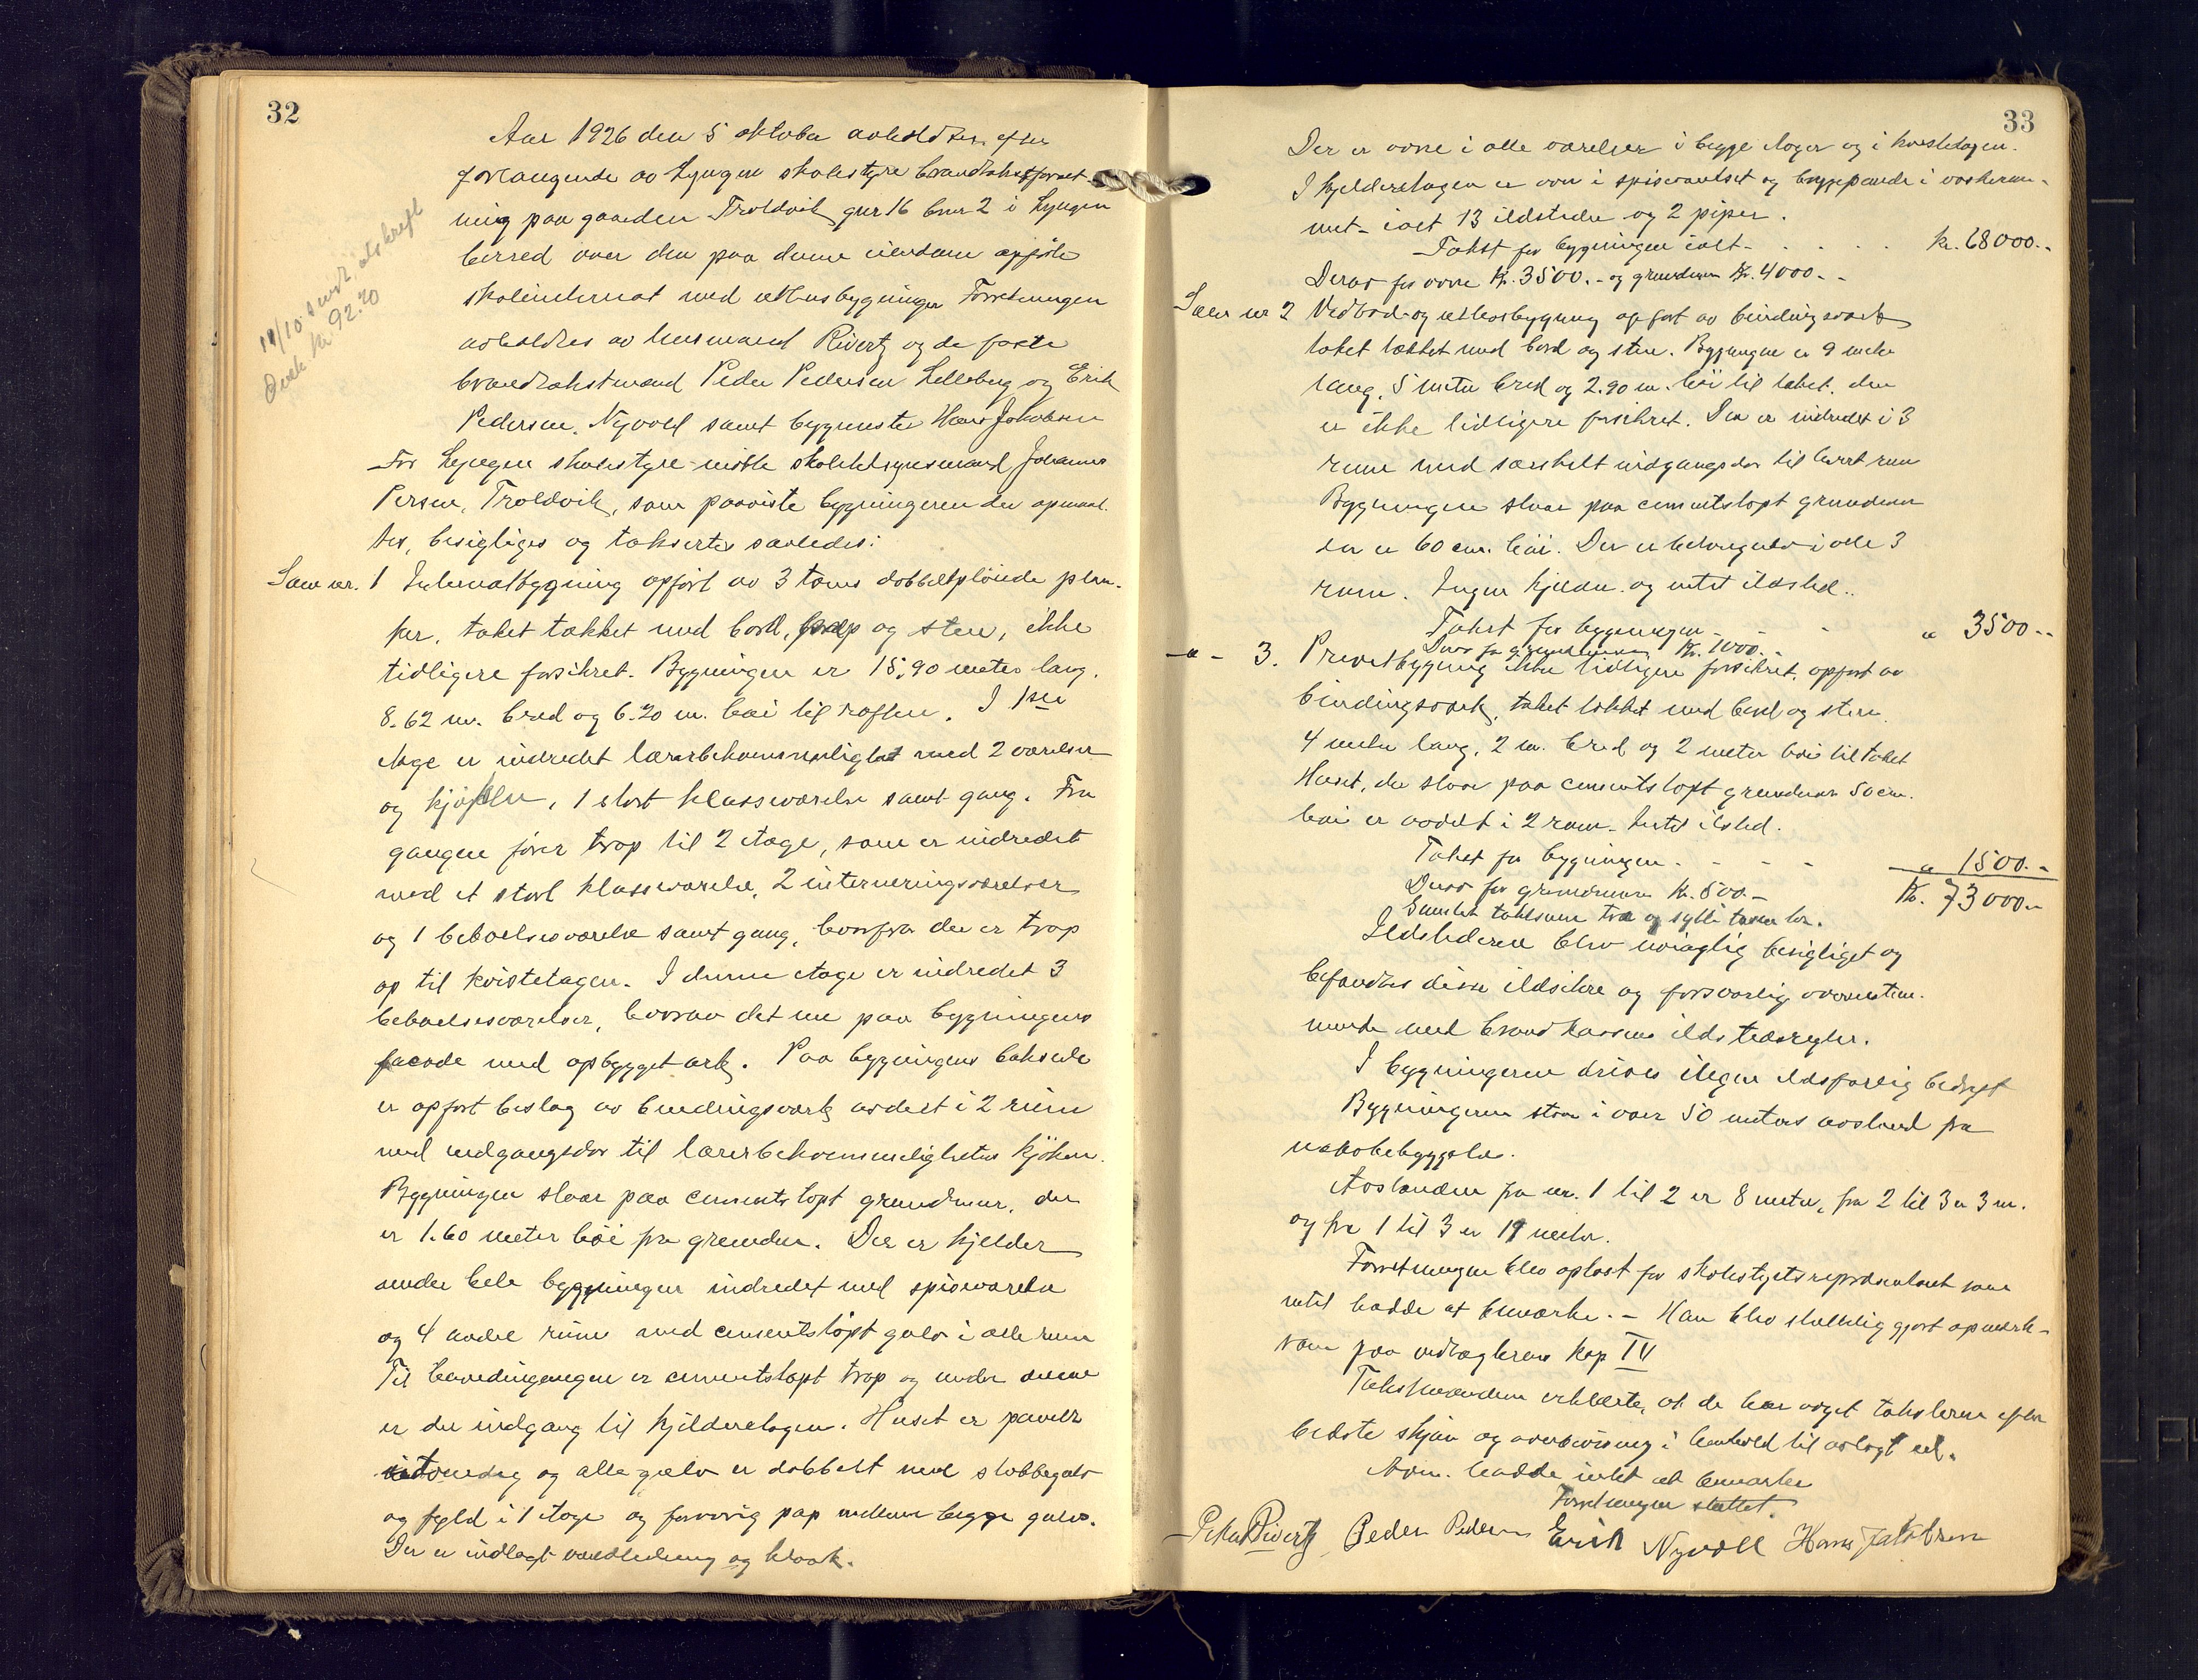 32
Aar 1926 den 5 oktober avholdtes efter
forlangende av Lyngen skolestyre brandtakstforret-
ning paa gaarden Troldvik gnr 16 bnr 2 i Lyngen
herred over den paa denne eiendom opførte
skoleinternat med uthusbygninger Forretningen
avholdtes av lensmand Rivertz og de faste
brandtakstmænd Peder Pedersen Lelleberg og Erik
Pedersen Nyvold samt bygmester Hans Jakobsen
For Lyngen skolestyre møtte skoletilsynsmand Johannes
Persen, Troldvik, som paaviste bygningerne der opmaal-
tes, besigtiges og taksertes saaledes:
11/10 sendt utskrift
Kr 92.20
Løse nr. 1 Internatbygning opført av 3 toms dobbeltpløiede plan-
ker, taket tækket med bord, pap og sten, ikke
tidligere forsikret. Bygningen er 15,90 meter lang,
8.62 m. bred og 6.20 m. høi til røsten. I 1ste
etage er indredet lærerbekvemmelighet med 2 værelser
og kjøkken, 1 stort klasseværelse samt gang. Fra
gangen fører trap til 2 etage, som er indredet
med et stort klasseværelse, 2 interneringsværelser
og 1 beboelsesværelse samt gang, hvorfra der er trap
op til kvistetagen. I denne etage er indredet 3
beboelsesværelser, hvorav det ene paa bygningens
facade med opbygget ark. Paa bygningens bakside
er opført beslag av bindingsverk avdelt i 2 rum
med indgangsdør til lærerbekvemmelighetens kjøken.
Bygningen staar paa cementstøpt grundmur, der
er 1.60 meter høi fra grunden. Der er kjelder
under hele bygningen indredet med spiseværelse
og 4 andre rum med cementstøpt gulv i alle rum
Til hovedingangen er cementstøpt trap og under denne
er der indgang til kjelderetagen. Huset er panelt
utvendig og alle gulv er dobbelt med stubbegulv
og fyld i 1 etage og forøvrig pap mellem begge gulv.
Der er indlagt vandledning og kloak.
33
Der er ovne i alle værelser i begge etager og i kvistetagen.
I kjelderetagen er ovn i spiseværelset og bryggepande i vaskerum-
met - ialt 13 ildsteder og 2 piper.
Takst for bygningen ialt - . . . . kr. 68000.-
Derav for ovne Kr. 3500.- og grundmur Kr. 4000.-
Løse nr 2 Vedbod- og uthusbygning opført av bindingsverk
taket tækket med bord og sten. Bygningen er 9 meter
lang, 5 meter bred og 2.90 m. høi til taket. den
er ikke tidligere forsikret. Den er indredet i 3
rum med særskilt indgangsdør til hvert rum
Bygningen staar paa cementstøpt grundmur
der er 60 cm. høi. Der er betongulv i alle 3
rum. Ingen kjelder og intet ildsted..
Takst for bygningen - - - " 3500.-
Derav for grundmuren Kr. 1000.-
-"- 3. Privetbygning ikke tidligere forsikret, opført av
bindingsverk, taket tækket med bord og sten.
4 meter lang, 2 m. bred og 2 meter høi til taket
Huset, der staar paa cementstøpt grundmur 50 cm.
høi er avdelt i 2 rum. Intet ilsted.
Takst for bygningen - - - - " 1500.-
Derav for grundmuren Kr. 500.- Kr. 73000.-
Samlet takstsum tre og sytti tusen kr.
Ildstederne blev nøiagtig besigtiget og
befandtes disse ildsikre og forsvarlig overensstem-
mende med brandkassens ildstedsregler.
I bygningerne drives ingen ildsfarlig bedrift
Bygningerne staar i over 50 meters avstand fra
nabobebyggelse.
Avstanden fra nr. 1 til 2 er 8 meter, fra 2 til 3 er 3 m.
og fra 1 til 3 er 11 meter.
Forretningen blev oplæst for skolestyrets repræsentant som
intet hadde at bemærke. - Han blev skriftlig gjort opmerk-
som paa vedtægternes kap IV
Takstmændene erklærte, at de har avgit taksterne efter
bedste skjøn og overbevisning i henhold til avlagt ed.
Adm. hadde intet at bemærke
Forretningen sluttet.
Peter Rivertz Peder Pedersen Erik Nyvoll Hans Jakobsen